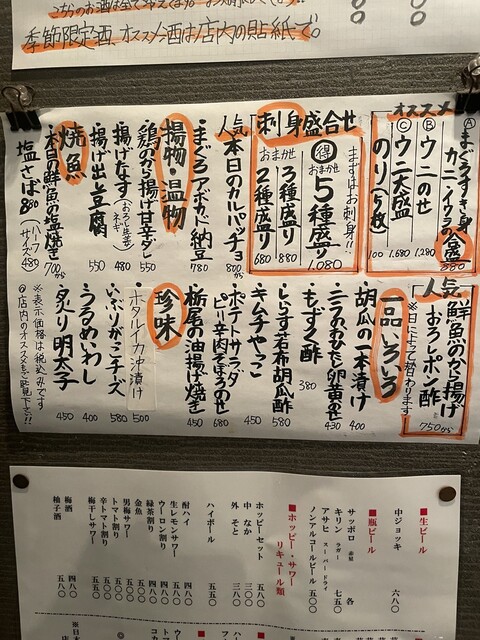 季節限定酒、オススメ酒は店内の貼紙で。
オススメ
Ⓐまぐろすき身
カニ・イクラ大盛 880
Ⓑウニのせ 1.280
Ⓒウニ大盛 1.680
のり(5枚) 100
刺身盛合せ
まずはお刺身!!
得 おまかせ 5種盛り 1.080
おまかせ
3種盛り 880
2種盛り 680
人気 本日のカルパッチョ 800から
まぐろアボカド納豆 780
揚物・温物
鶏のから揚げ甘辛ダレ 550
揚げなす 480
揚げ出し豆腐 550
焼魚
本日の鮮魚の塩焼き 700から
塩さば 800 (ハーフサイズ 480)
人気
鮮魚のから揚げ
おろしポン酢 750から
※日によって替わります
一品いろいろ
胡瓜の一本漬け 400
ニラのおひたし卵黄のせ 430
もずく酢 380
しらす若布胡瓜酢 580
キムチやっこ 450
ポテトサラダ
ピリ辛肉そぼろのせ 680
栃尾の油揚げ焼き 450
珍味
ホタルイカ沖漬け 500
いぶりがっこチーズ 580
うるめいわし 400
炙り明太子 450
※表示価格は税込みです
◎店内のオススメもご覧下さい!!
■生ビール
中ジョッキ 六八〇
■瓶ビール
サッポロ 赤星
キリン ラガー 七五〇
アサヒ スーパードライ
ノンアルコールビール 五五〇
■ホッピー・サワー
リキュール類
ホッピーセット 五八〇
中 なか 三八〇
外 そと 三〇〇
ハイボール 五五〇
酎ハイ 四八〇
生レモンサワー
ウーロン割り 四八〇
緑茶割り 四八〇
金魚
男梅サワー
トマト割り
辛トマト割り
梅干しサワー
梅酒 五八〇
柚子酒 五八〇